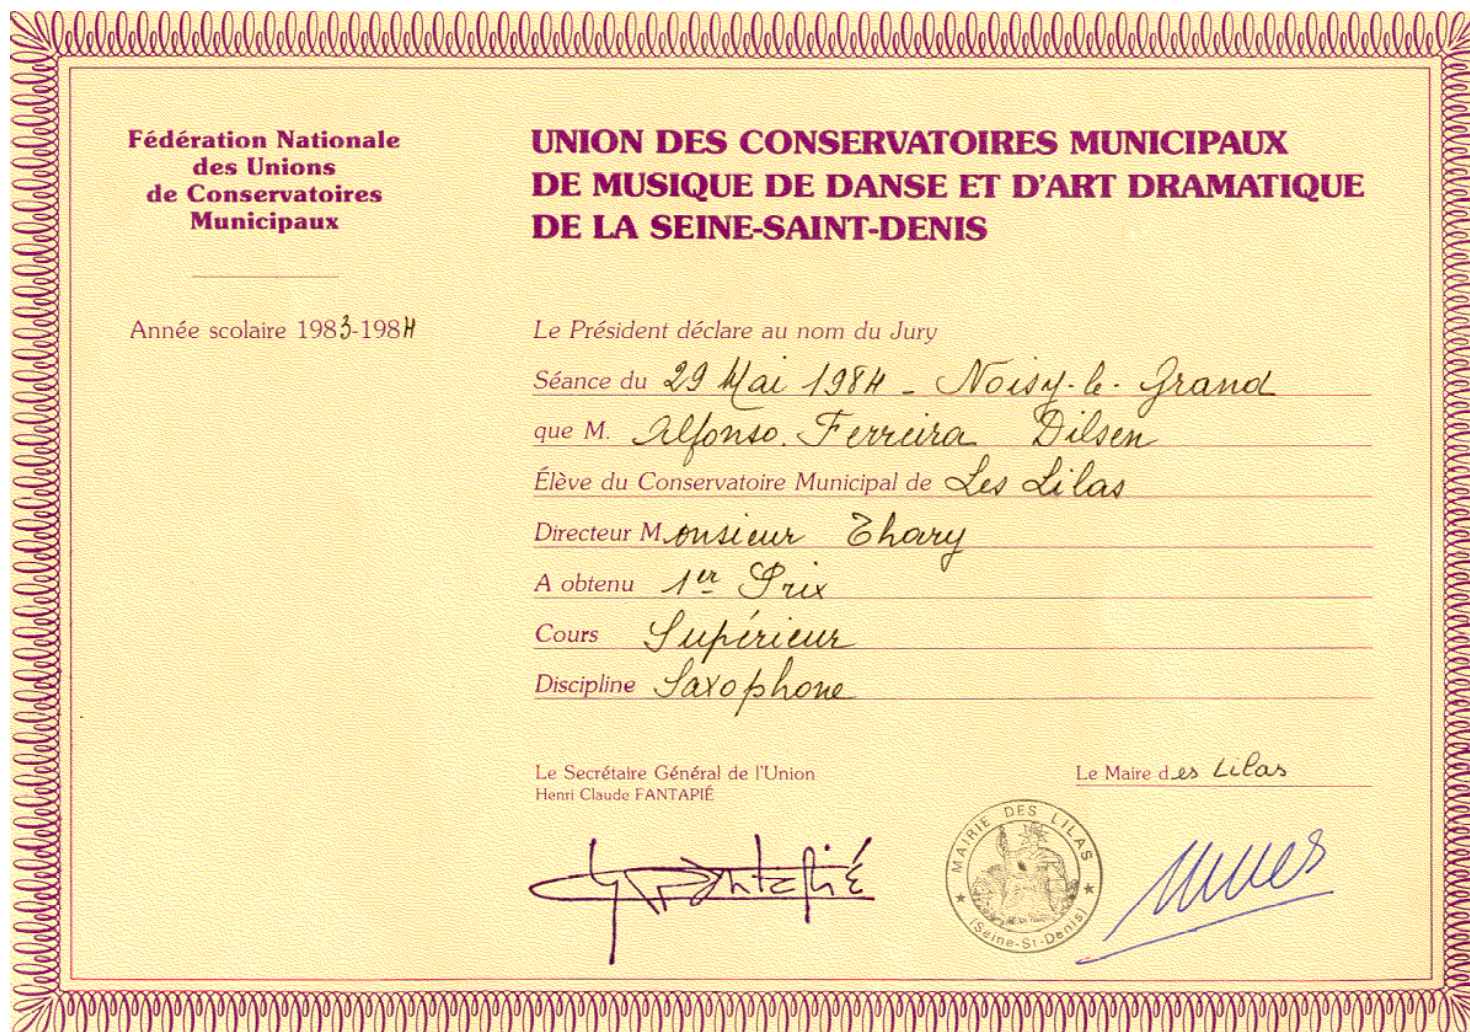 Fédération Nationale
des Unions
de Conservatoires
Municipaux
UNION DES CONSERVATOIRES MUNICIPAUX
DE MUSIQUE DE DANSE ET D'ART DRAMATIQUE
DE LA SEINE-SAINT-DENIS
Année scolaire 1983-1984
Le Président déclare au nom du Jury
Séance du 29 Mai 1984 - Noisy-le-Grand
que M. Alfonso. Ferreira Dilsen
Élève du Conservatoire Municipal de Les Lilas
Directeur Monsieur Thary
A obtenu 1er Prix
Cours Supérieur
Discipline Saxophone
Le Secrétaire Général de l'Union
Henri Claude FANTAPIÉ
Le Maire des Lilas
MAIRIE DES LILAS
(Seine-St-Denis)
Fantapié